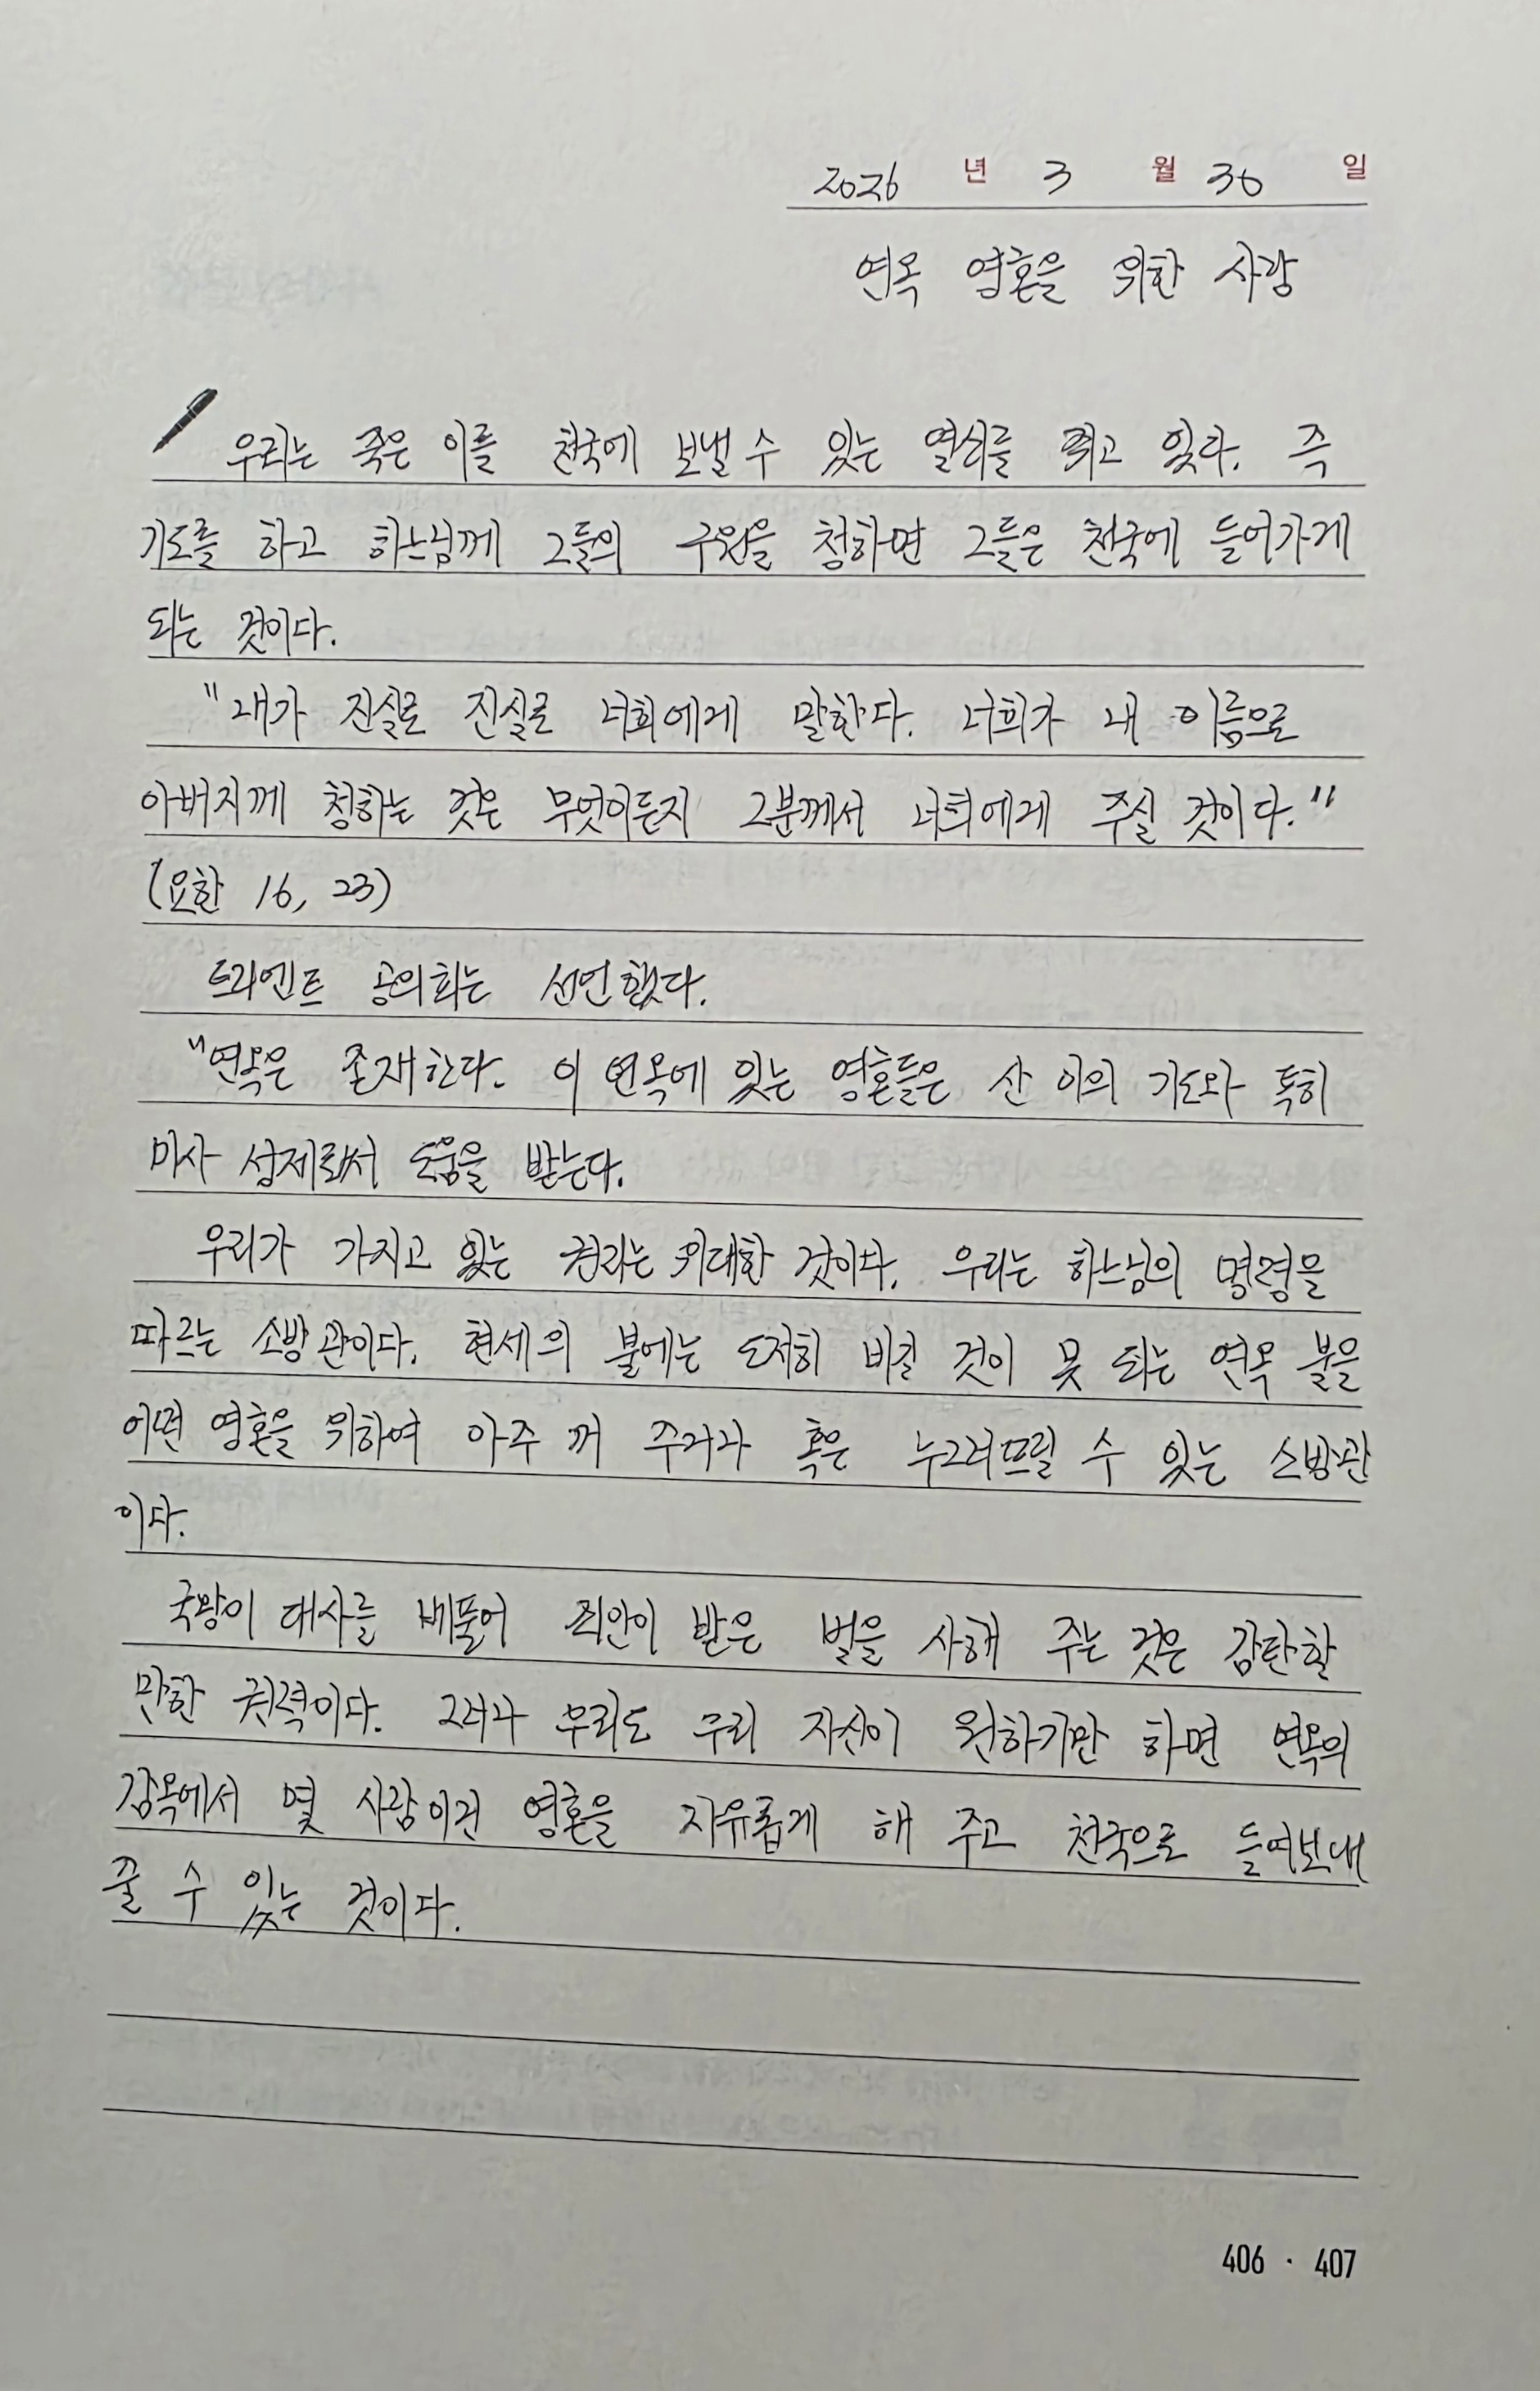 2026 년 3 월 30 일
연옥 영혼을 위한 사랑
우리는 죽은 이를 천국에 보낼 수 있는 열쇠를 쥐고 있다. 즉
기도를 하고 하느님께 그들의 구원을 청하면 그들은 천국에 들어가게
되는 것이다.
"내가 진실로 진실로 너희에게 말한다. 너희가 내 이름으로
아버지께 청하는 것은 무엇이든지 그분께서 너희에게 주실 것이다."
(요한 16, 23)
트리엔트 공의회는 선언했다.
"연옥은 존재한다. 이 연옥에 있는 영혼들은 산 이의 기도와 특히
미사 성제로써 도움을 받는다.
우리가 가지고 있는 권리는 위대한 것이다. 우리는 하느님의 명령을
따르는 소방관이다. 현세의 불에는 도저히 비길 것이 못 되는 연옥 불을
어떤 영혼을 위하여 아주 꺼 주거나 혹은 누그러뜨릴 수 있는 소방관
이다.
국왕이 대사를 베풀어 죄인이 받은 벌을 사해 주는 것은 감탄할
만한 권력이다. 그러나 우리도 우리 자신이 원하기만 하면 연옥의
감옥에서 몇 사람이건 영혼을 자유롭게 해 주고 천국으로 들여보내
줄 수 있는 것이다.
406 · 407